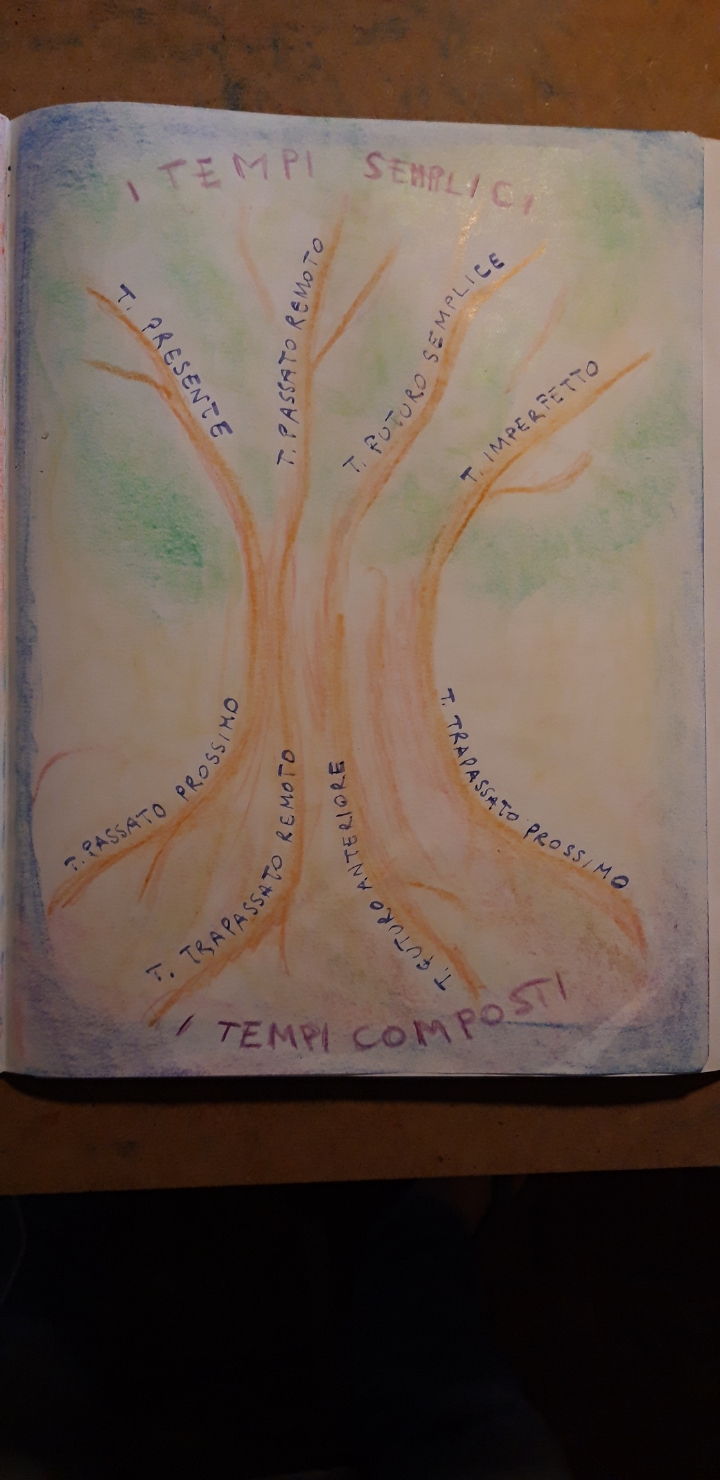 I TEMPI SEMPLICI
T. PRESENTE
T. PASSATO REMOTO
T. FUTURO SEMPLICE
T. IMPERFETTO
T. PASSATO PROSSIMO
T. TRAPASSATO REMOTO
T. FUTURO ANTERIORE
T. TRAPASSATO PROSSIMO
I TEMPI COMPOSTI